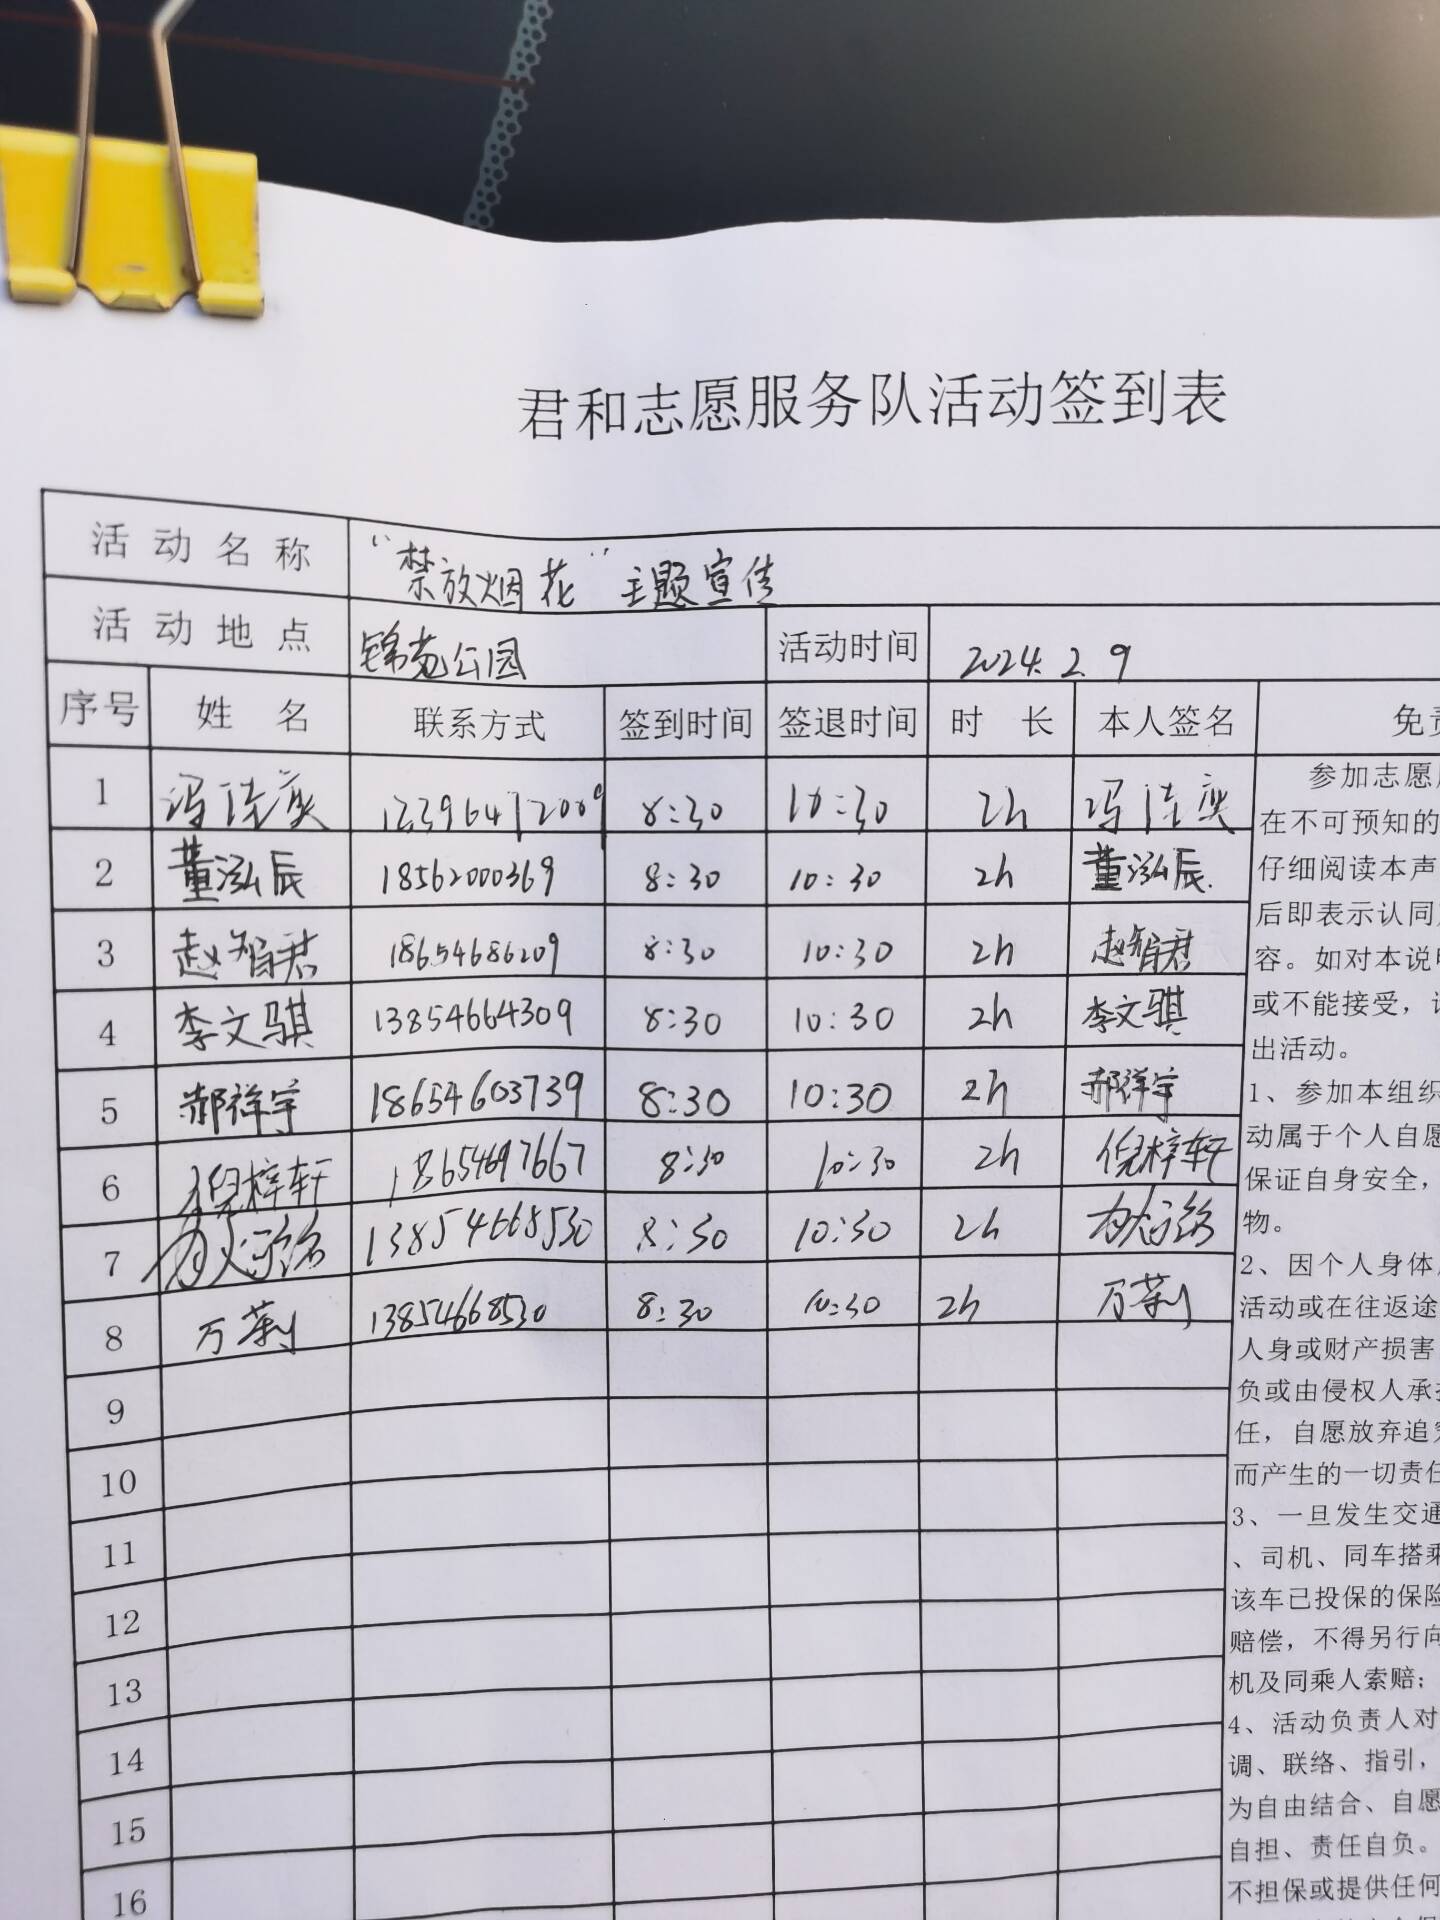 君和志愿服务队活动签到表
活动名称 “禁放烟花”主题宣传
活动地点 锦苑公园 活动时间 2024.2.9
序号 姓名 联系方式 签到时间 签退时间 时长 本人签名 免责
1 冯 8:30 10:30 2h 冯
2 董泓辰 18562000369 8:30 10:30 2h 董泓辰
3 赵智君 18654686209 8:30 10:30 2h 赵智君
4 李文骐 13854664309 8:30 10:30 2h 李文骐
5 郝祥宇 18654603739 8:30 10:30 2h 郝祥宇
6 倪梓轩 18654697667 8:30 10:30 2h 倪梓轩
7 13854668530 8:30 10:30 2h
8 万莉 13854668530 8:30 10:30 2h 万莉
9
10
11
12
13
14
15
16
参加志愿
在不可预知的
仔细阅读本声
后即表示认同
容。如对本说明
或不能接受,
出活动。
1、参加本组织
动属于个人自愿
保证自身安全,
物。
2、因个人身体
活动或在往返途
人身或财产损害
负或由侵权人承担
任,自愿放弃追究
而产生的一切责任
3、一旦发生交通
、司机、同车搭乘
该车已投保的保险
赔偿,不得另行向
机及同乘人索赔;
4、活动负责人对
调、联络、指引,
为自由结合、自愿
自担、责任自负。
不担保或提供任何